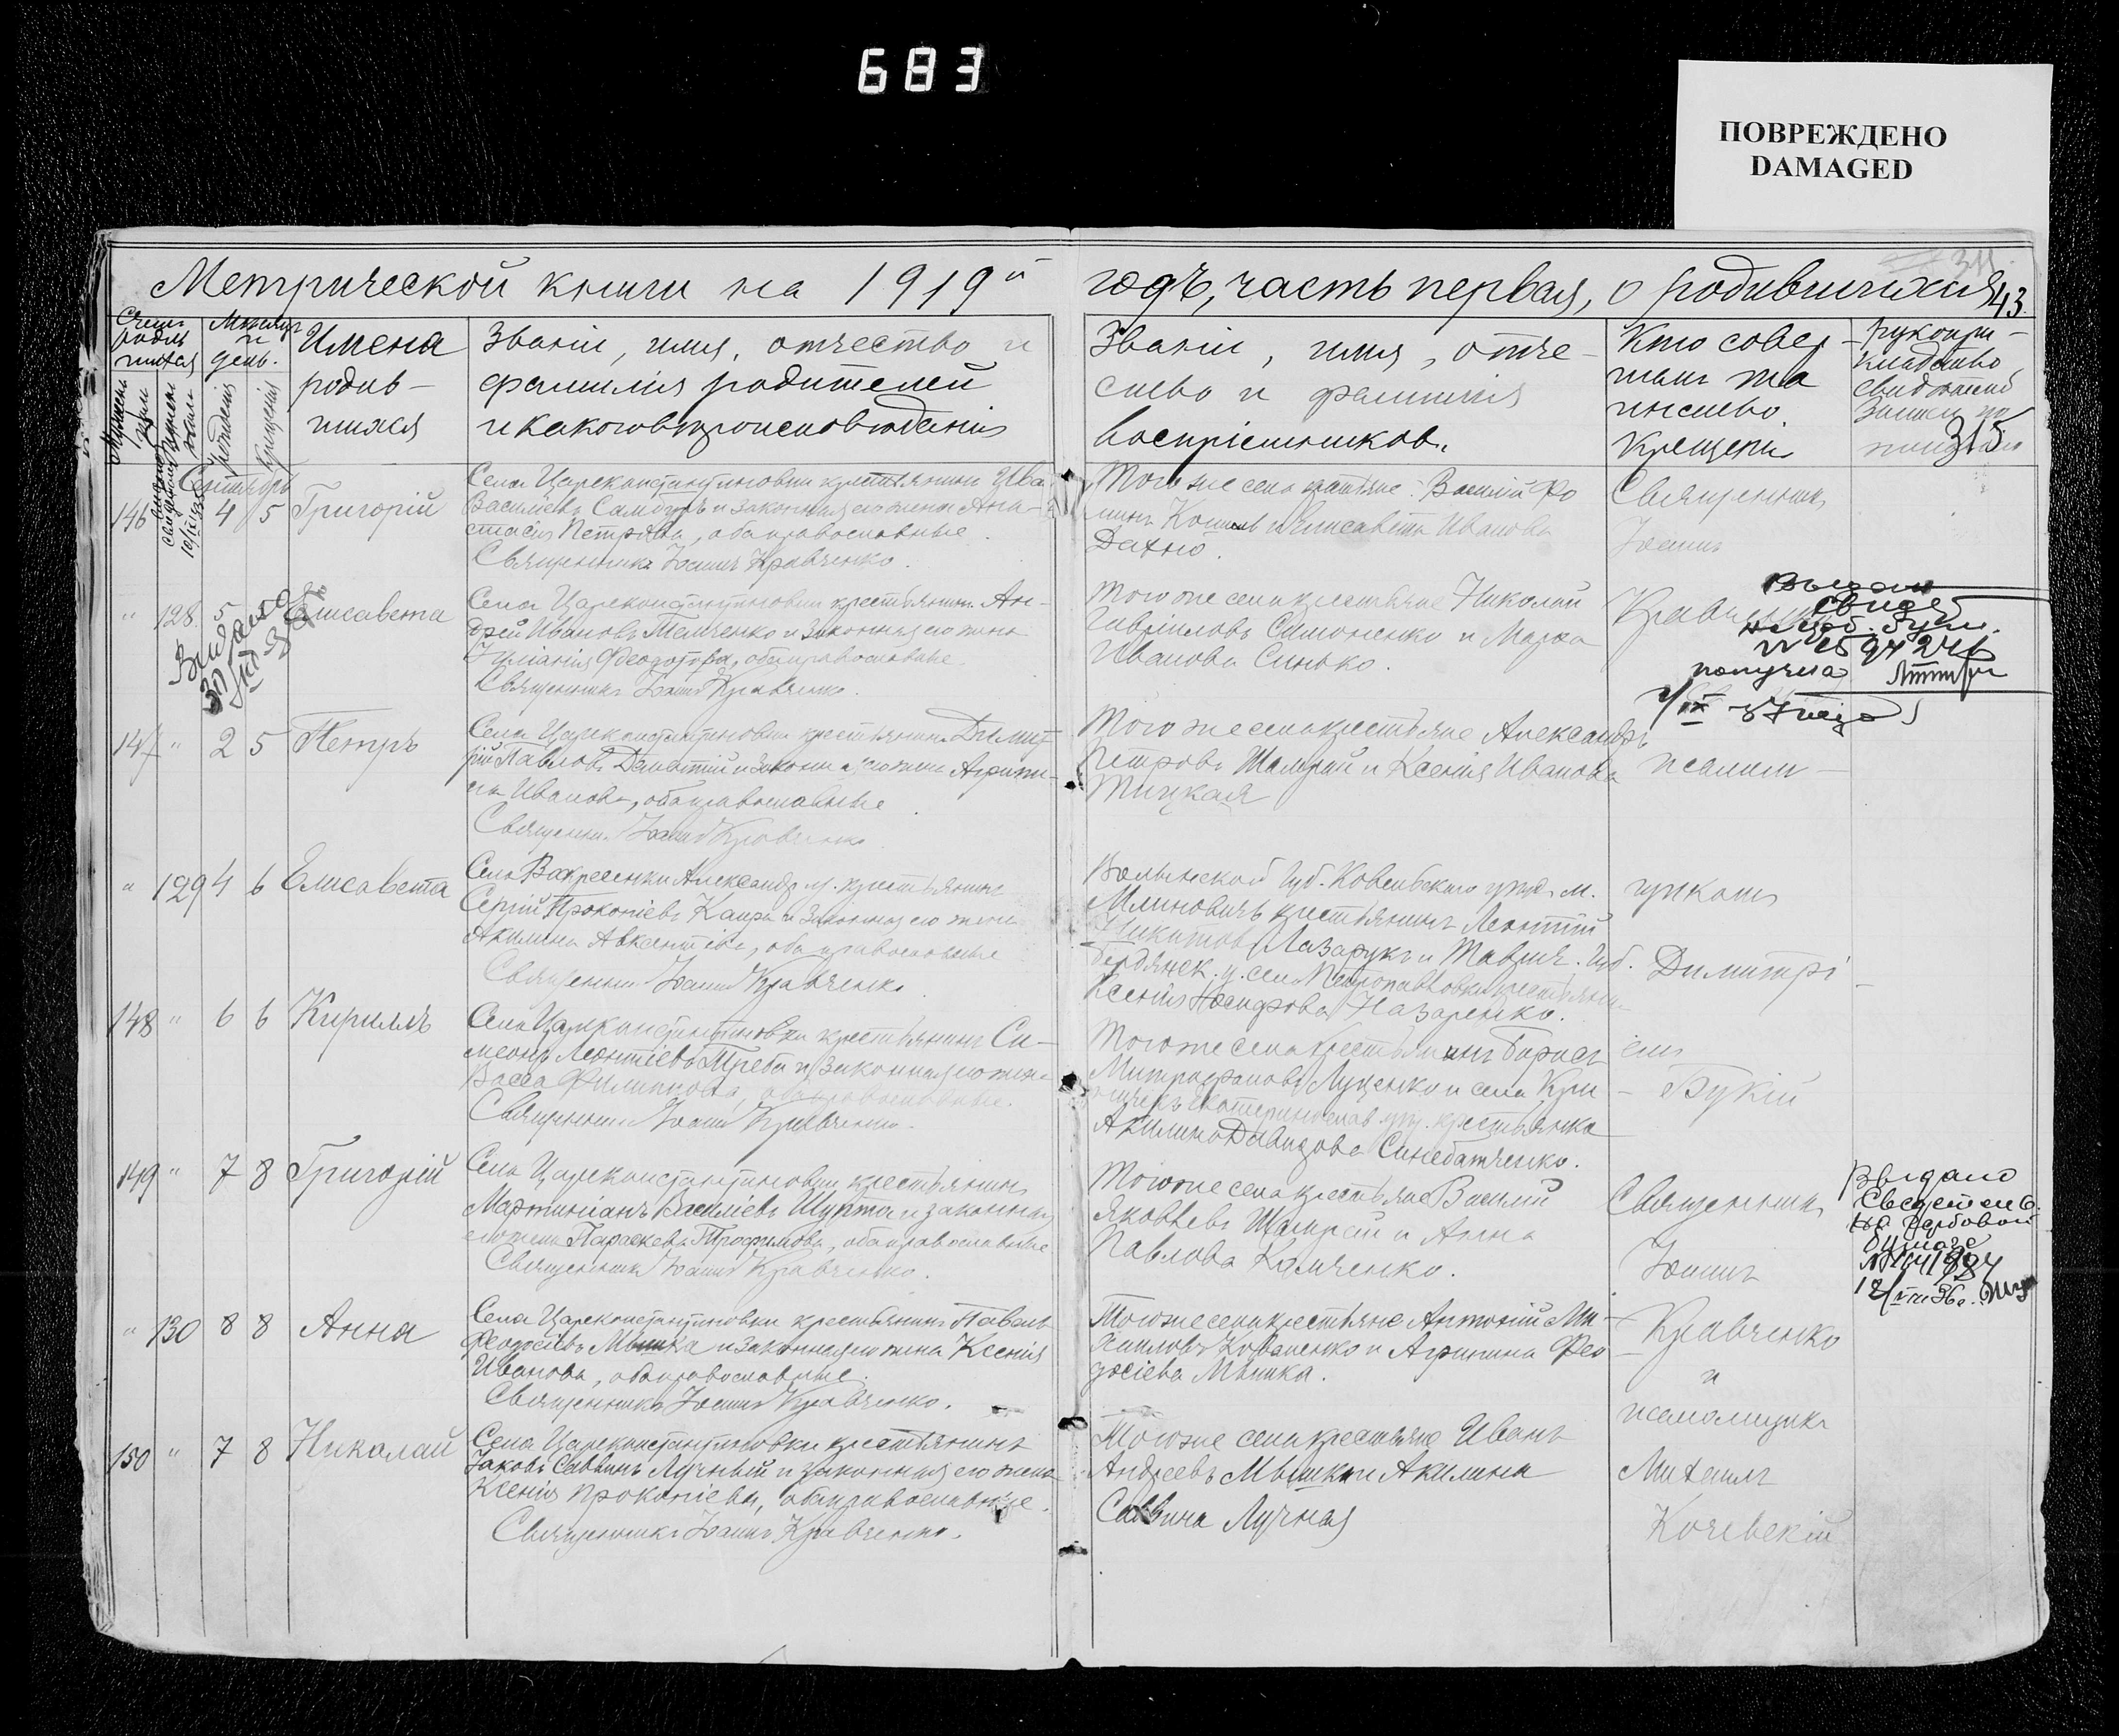 683
ПОВРЕЖДЕНО
DAMAGED
Метрической книги на 1919й
годъ, часть первая, о родившихся
43
Счетъ родив шихся
Мѣсяцъ и день.
рожденія
крещенія
Имена
родив-
шихся
Званіе, имя, отчество и
фамилія родителей
и какого вѣроисповѣданія
Званіе, имя, отче-
ство и фамилія
воспріемниковъ.
Кто совер-
шалъ та
инство
крещенія
Рукопри-
кладство
свидѣтелей
записи по
315
Сентябрь
146
4 5 Григорій
Села Цареконстантиновки крестьянинъ Ива
Васильевъ Самбуръ и законная его жена Ана-
стасія Петрова, оба православные.
Священникъ Іоаннъ Кравченко.
Того же села крестьяне: Василій Фо
минъ и Елисавета Иванова
Дахно.
Священникъ
Іоаннъ
" 128 5 Елисавета
Села Цареконстантиновки крестьянинъ Ан-
дрей Ивановъ Темченко и законная его жена
Іуліанія Феодотова, оба православные.
Священникъ Іоаннъ Кравченко.
Того же села крестьяне Николай
Гавріиловъ Симоненко и Марѳа
Иванова Синько.
Кравченко
Выдано
Свидет
на герб. бум.
получила
147 " 2 5 Петръ
Села Цареконстантиновки крестьянинъ Димит-
рій Павловъ и законная его жена Агрипи-
на Иванова, оба православные
Священникъ Іоаннъ Кравченко
Того же села крестьяне Александръ
Петровъ Шамрай и Ксенія Иванова
Тицкая
псалом-
" 129 4 6 Елисавета
Села Воскресенки Александр. у. крестьянинъ
Сергій Прокопіевъ и законная его жена
Акилина Авксентіева, оба православные
Священникъ Іоаннъ Кравченко.
Волынской губ. Ковельскаго уѣзд. м.
Млиновичъ крестьянинъ Леонтій
Никитовъ Лазарукъ и Таврич. губ.
Бердянск. у. села Петропавловки крестьянка
Ксенія Іосифова Назаренко.
щикомъ
Димитрі-
148 " 6 6 Кириллъ
Села Цареконстантиновки крестьянинъ Си-
меонъ Леонтіевъ Треба и законная его жена
Васса Филиппова, оба православные.
Священникъ Іоаннъ Кравченко.
Того же села крестьянинъ Борисъ
Митрофановъ Луценко и села Кри
ничекъ Екатеринослав. уѣзд. крестьянка
Акилина Давидова Синебатченко.
емъ
Букій
149 " 7 8 Григорій
Села Цареконстантиновки крестьянинъ
Мартиніанъ Василіевъ Шурта и законная
его жена Параскева Трофимова, оба православные
Священникъ Іоаннъ Кравченко.
Того же села крестьяне Василій
Яковлевъ Шамрай и Анна
Павлова Камченко.
Священникъ
Іоаннъ
Выдано
Свидетельс.
на гербовой
бумаге
" 130 8 8 Анна
Села Цареконстантиновки крестьянинъ Павелъ
Феодосіевъ Мышка и законная его жена Ксенія
Иванова, оба православные.
Священникъ Іоаннъ Кравченко.
Того же села крестьяне Антоній Ми-
хаиловъ Коваленко и Агрипина Фео
досіева Мышка.
Кравченко
и
псаломщикъ
150 " 7 8 Николай
Села Цареконстантиновки крестьянинъ
Іаковъ Саввинъ Лучный и законная его жена
Ксенія Прокопіева, оба православные.
Священникъ Іоаннъ Кравченко.
Того же села крестьяне Иванъ
Андреевъ Мышка и Акилина
Саввина Лучная
Михаилъ
Кочевскій